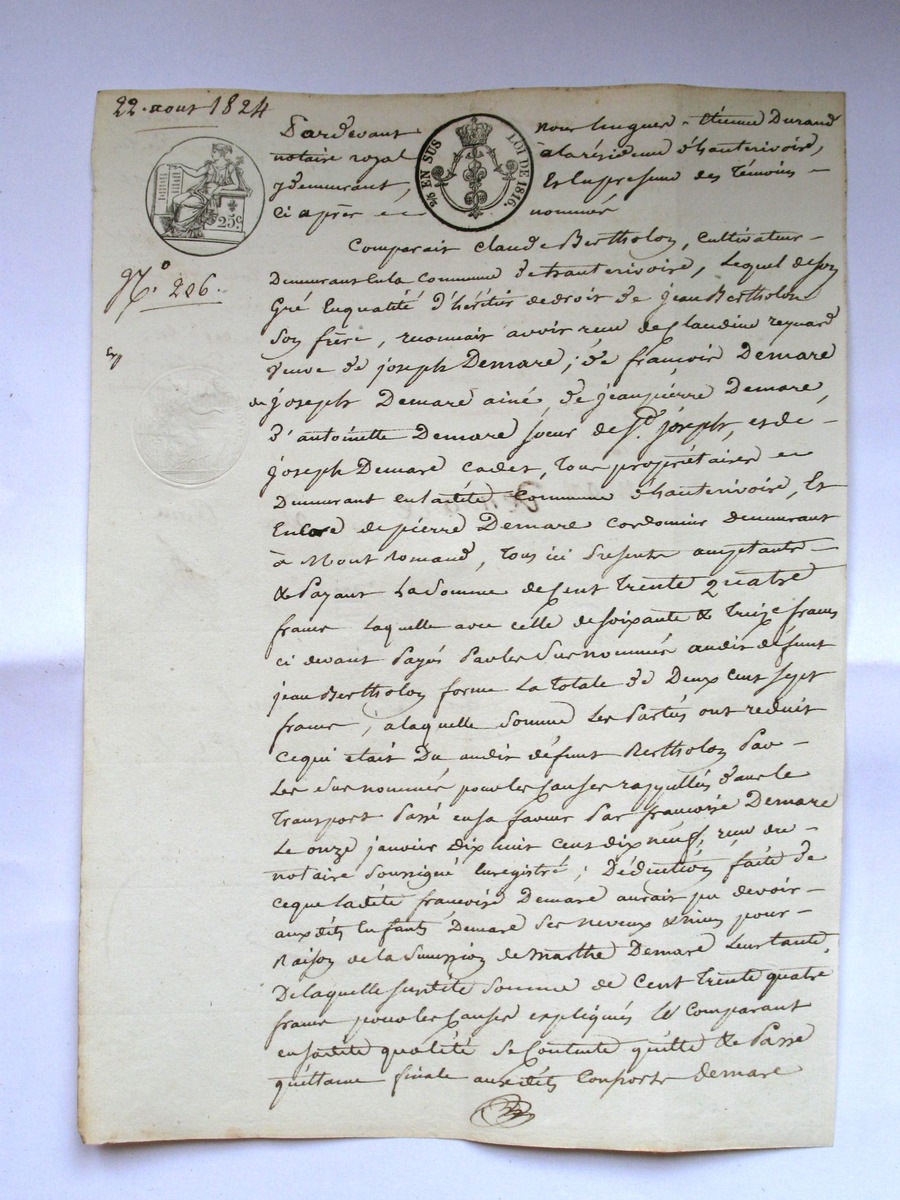 22. aout 1824
25c.
2/5 EN SUS LOI DE 1816.
Pardevant nous hugues-étienne Durand
notaire royal à la résidence d'hauterivoire,
y demeurant, Et En presence des Témoins
Ci après nommés
N.o 206.
Comparait Claude Bertholon, Cultivateur
Demeurant En la Commune de hauterivoire, Lequel de son
Gré En qualité d'héritier de droit de Jean Bertholon
Son frère, reconnait avoir reçu de Claudine
veuve de joseph Demare; de françois Demare
de joseph Demare ainé, de jean pierre Demare,
d'antoinette Demare soeur de Sd. joseph, et de
joseph Demare cadet, Tous propriétaires et
Demeurant en ladite Commune d'hauterivoire, Et
Encore de pierre Demare Cordonnier demeurant
à Mont Romand, Tous ici Présents acceptants
& Payant La Somme de Cent Trente Quatre
francs Laquelle avec celle de soixante & Treize francs
ci devant Payés Par les Surnommés audit défunt
jean Bertholon forme La Totale de Deux Cent Sept
francs, a laquelle Somme Les Parties ont reduit
Ce qui etait Du audit défunt Bertholon Par
Les Surnommés pour les Causes rappellés dans le
Transport Passé en sa faveur Par françoise Demare
Le onze janvier Dix huit Cent dix neuf, reçu du
notaire Soussigné Enregistré; Déduction faite de
ce que ladite françoise Demare aurait pu devoir
auxdits Enfants Demare Ses neveux & nieces pour
Raison de la Succession de Marthe Demare Leur tante,
De laquelle susdite Somme de Cent Trente quatre
francs pour les Causes expliqués le Comparant
en sadite qualité Se Contente quitte & Passe
quittance finale auxdits Consorts Demare